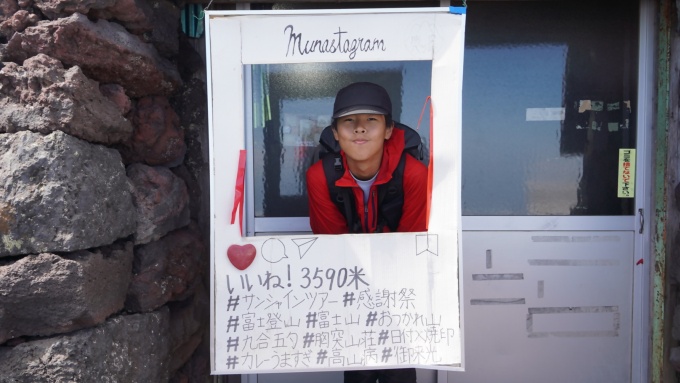 Munastagram
いいね! 3590米
#サンシャインツアー #感謝祭
#富士登山 #富士山 #おつかれ山
#九合五夕 #胸突山荘 #日付入焼印
#カレーうますぎ #高山病 #御来光